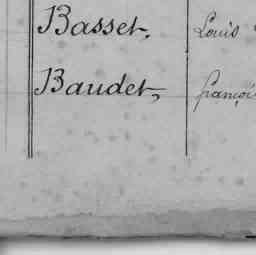 Basset, Louis
Baudet, françois